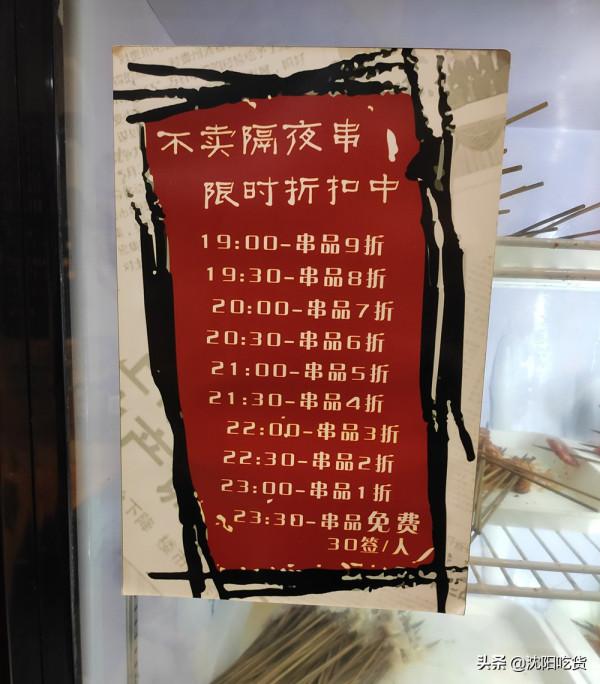 不卖隔夜串
限时折扣中
19:00-串品9折
19:30-串品8折
20:00-串品7折
20:30-串品6折
21:00-串品5折
21:30-串品4折
22:00-串品3折
22:30-串品2折
23:00-串品1折
23:30-串品免费
30签/人
头条 @沈阳吃货